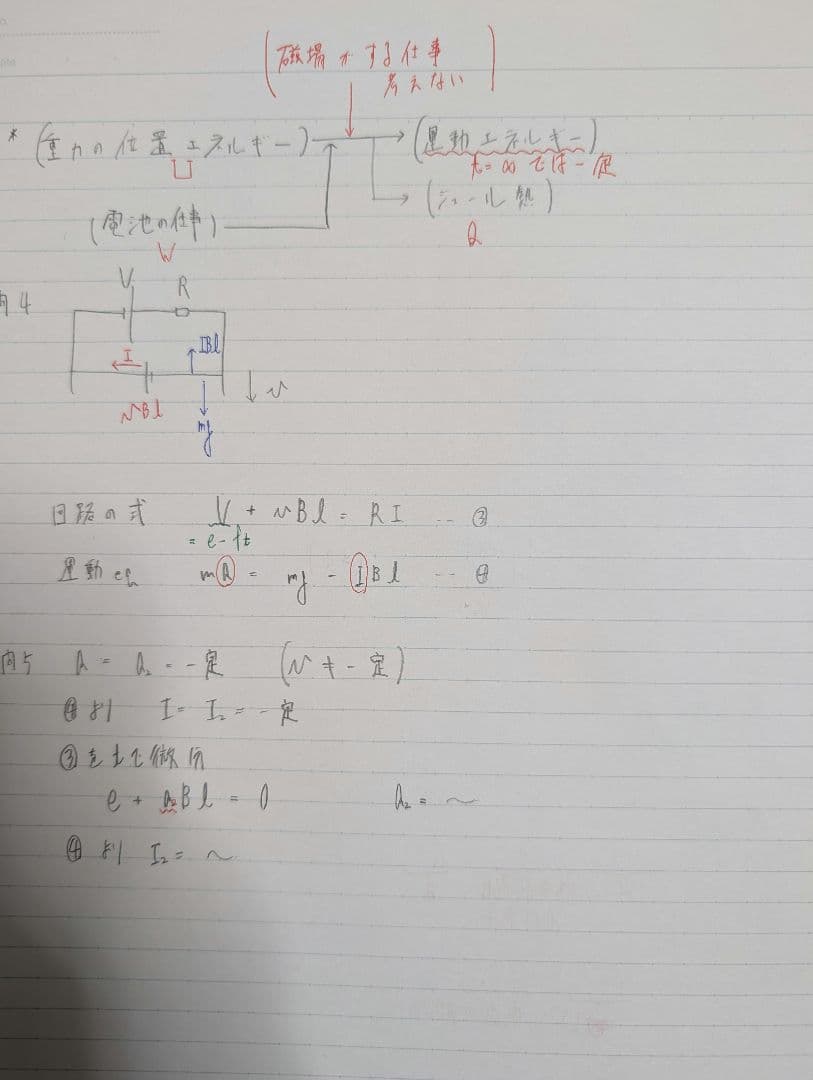 (磁場がする仕事
考えない)
* (重力の位置エネルギー) → (運動エネルギー)
U
t=∞では一定
(ジュール熱)
(電池の仕事)
Q
W
V
R
問4
I
IBl
v
vBl
mg
回路の式 V + vBl = RI ... ③
= e-ft
運動eq ma = mg - IBl ... ④
問5 a = a₂ = 一定 (vキ一定)
④より I = I₂ = 一定
③をtで微分
e + a₂Bl = 0 a₂ = ~
④より I₂ = ~